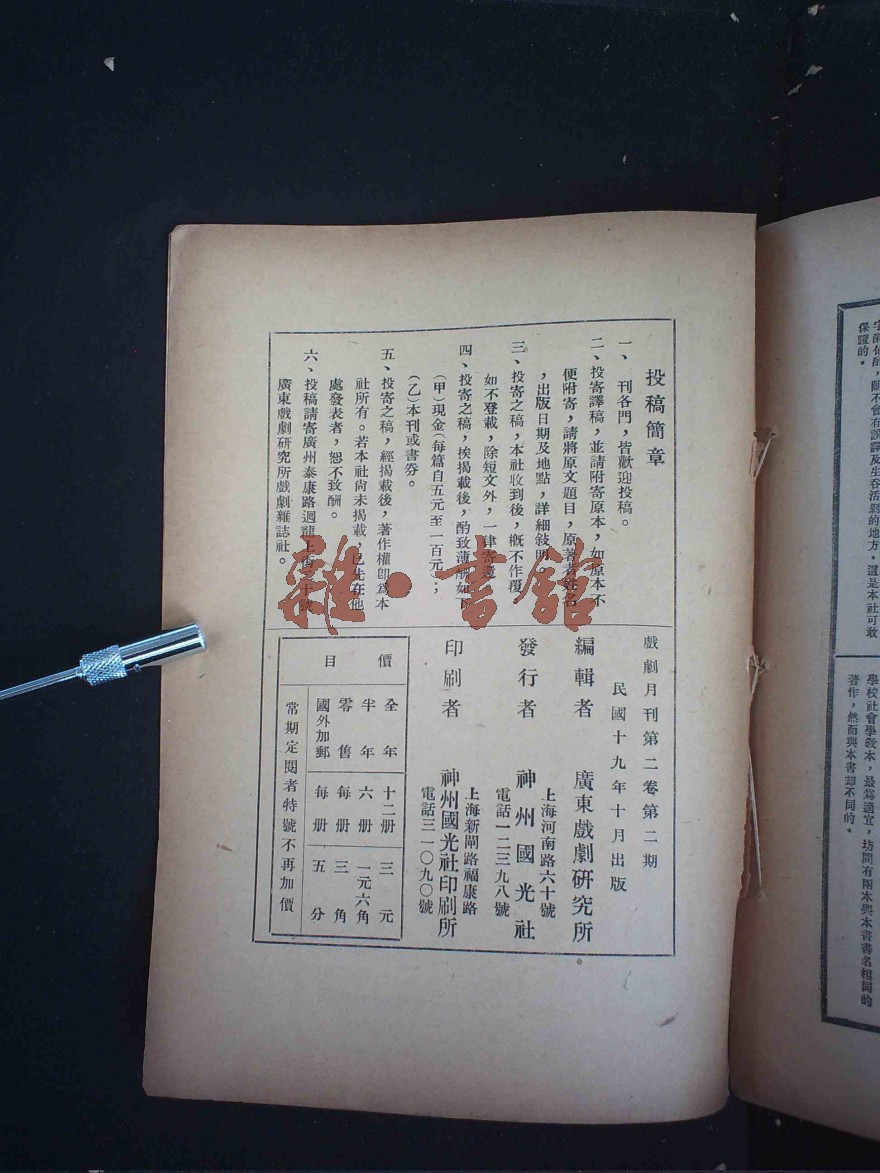 投稿簡章
一、刊各門，皆歡迎投稿。
二、投寄譯稿，並請附寄原本，如原本不
便附寄，請將原文題目，原著者姓名
，出版日期及地點，詳細敍明。
三、投寄之稿，本社收到後，槪不作覆，
如不登載，除短文外，一律寄還。
四、投寄之稿，挨揭載後，酌致薄酬如下
（甲）現金（每篇自五元至一百元）；
（乙）本刊或書券。
五、投寄之稿，經揭載後，著作權卽爲本
社所有。若本社尙未揭載，已先在他
處發表者，恕不致酬。
六、投稿請寄廣州泰康路迴龍上街 十號
廣東戲劇研究所戲劇雜誌社。
雜·書館
戲劇月刊第二卷第二期
民國十九年十月出版
編輯者 廣東戲劇研究所
上海河南路六十號
發行者 神州國光社
電話一二三九八號
上海新閘路福康路
印刷者 神州國光社印刷所
電話三一〇九〇號
價目
全年 十二册 三元
半年 六册 一元六角
零售 每册 三角
國外加郵 每册 五分
常期定閱者特號不再加價
，斷不會有誤譯及生吞活剝的地方。這是本社可敢
保證的。
學校社會學敎本，最爲適宜，坊間有兩本與本書書名相同的
著作，然而與本書却不同的。